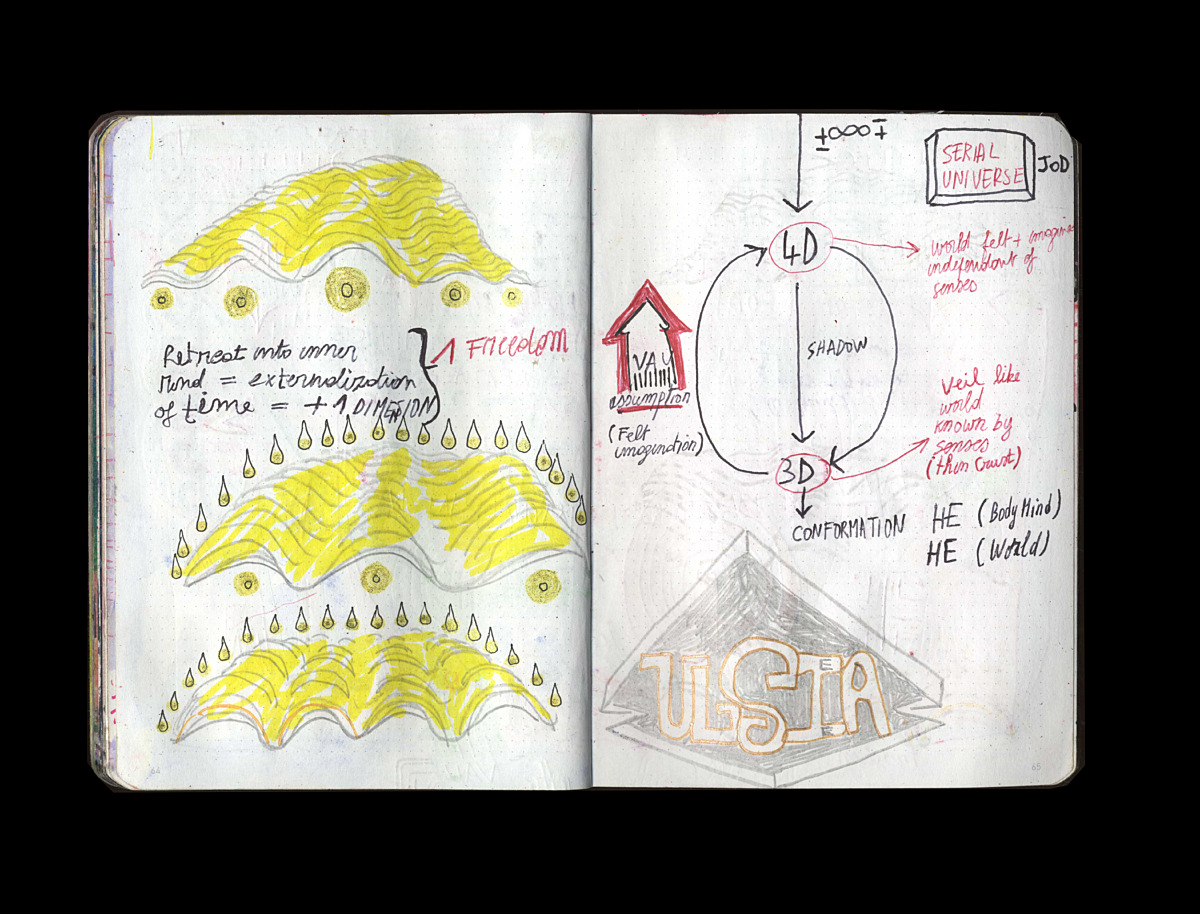 Retreat into inner
Mind = externalization
of time = + 1 DIMENSION
1 FREEDOM
64
±∞∞±
SERIAL
UNIVERSE
JOD
4D
world felt + imagined
independant of
senses
SHADOW
VAU
assumption
(Felt
imagination)
Veil like
world
known by
senses
(thin Crust)
3D
CONFORMATION
HE (Body Mind)
HE (World)
65